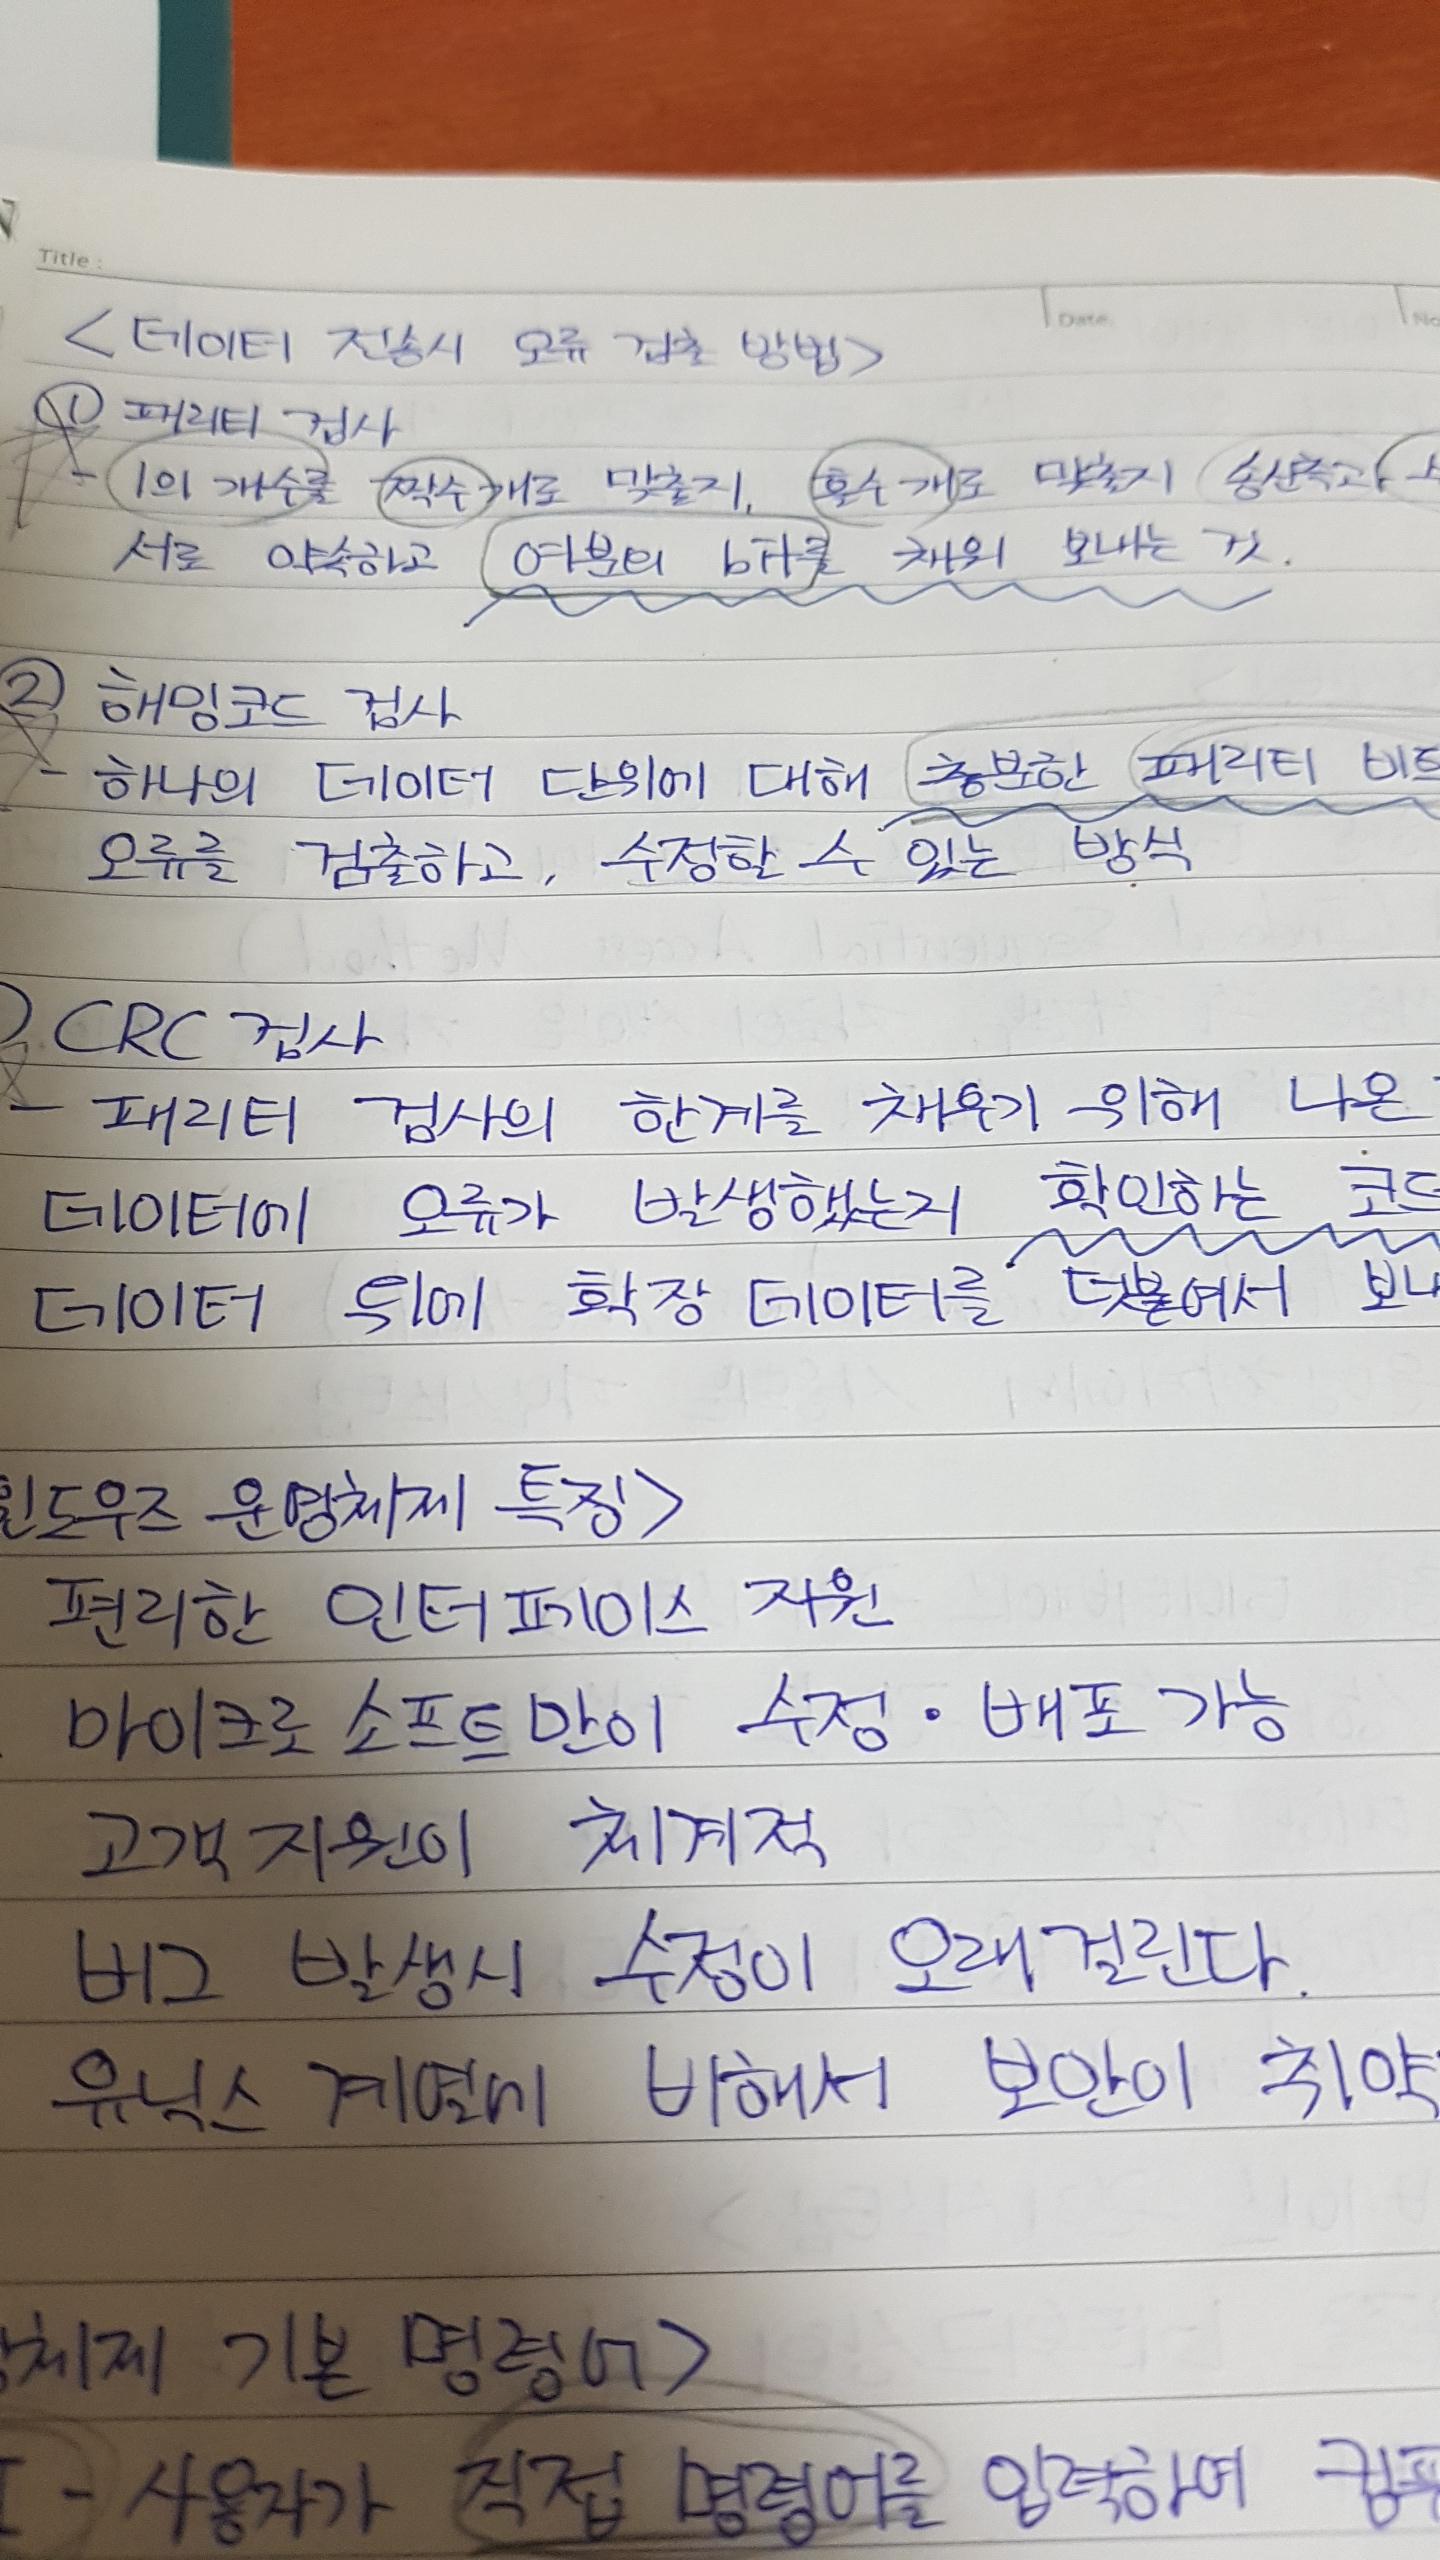 Title :
Date
No
<데이터 전송시 오류 검출 방법>
① 패리티 검사
- 1의 개수를 짝수개로 맞출지, 홀수개로 맞출지 송신측과,
서로 약속하고 여분의 bit를 채워 보내는 것.
② 해밍코드 검사
- 하나의 데이터 단위에 대해 충분한 패리티 비트
오류를 검출하고, 수정할 수 있는 방식
CRC 검사
- 패리티 검사의 한계를 채우기 위해 나온
데이터에 오류가 발생했는지 확인하는 코드
데이터 뒤에 확장데이터를 덧붙여서 보내
윈도우즈 운영체제 특징>
편리한 인터페이스 지원
마이크로소프트만이 수정·배포가능
고객지원이 체계적
버그 발생시 수정이 오래걸린다.
유닉스계열에 비해서 보안이 취약
체제 기본 명령어>
- 사용자가 직접 명령어를 입력하여 컴퓨